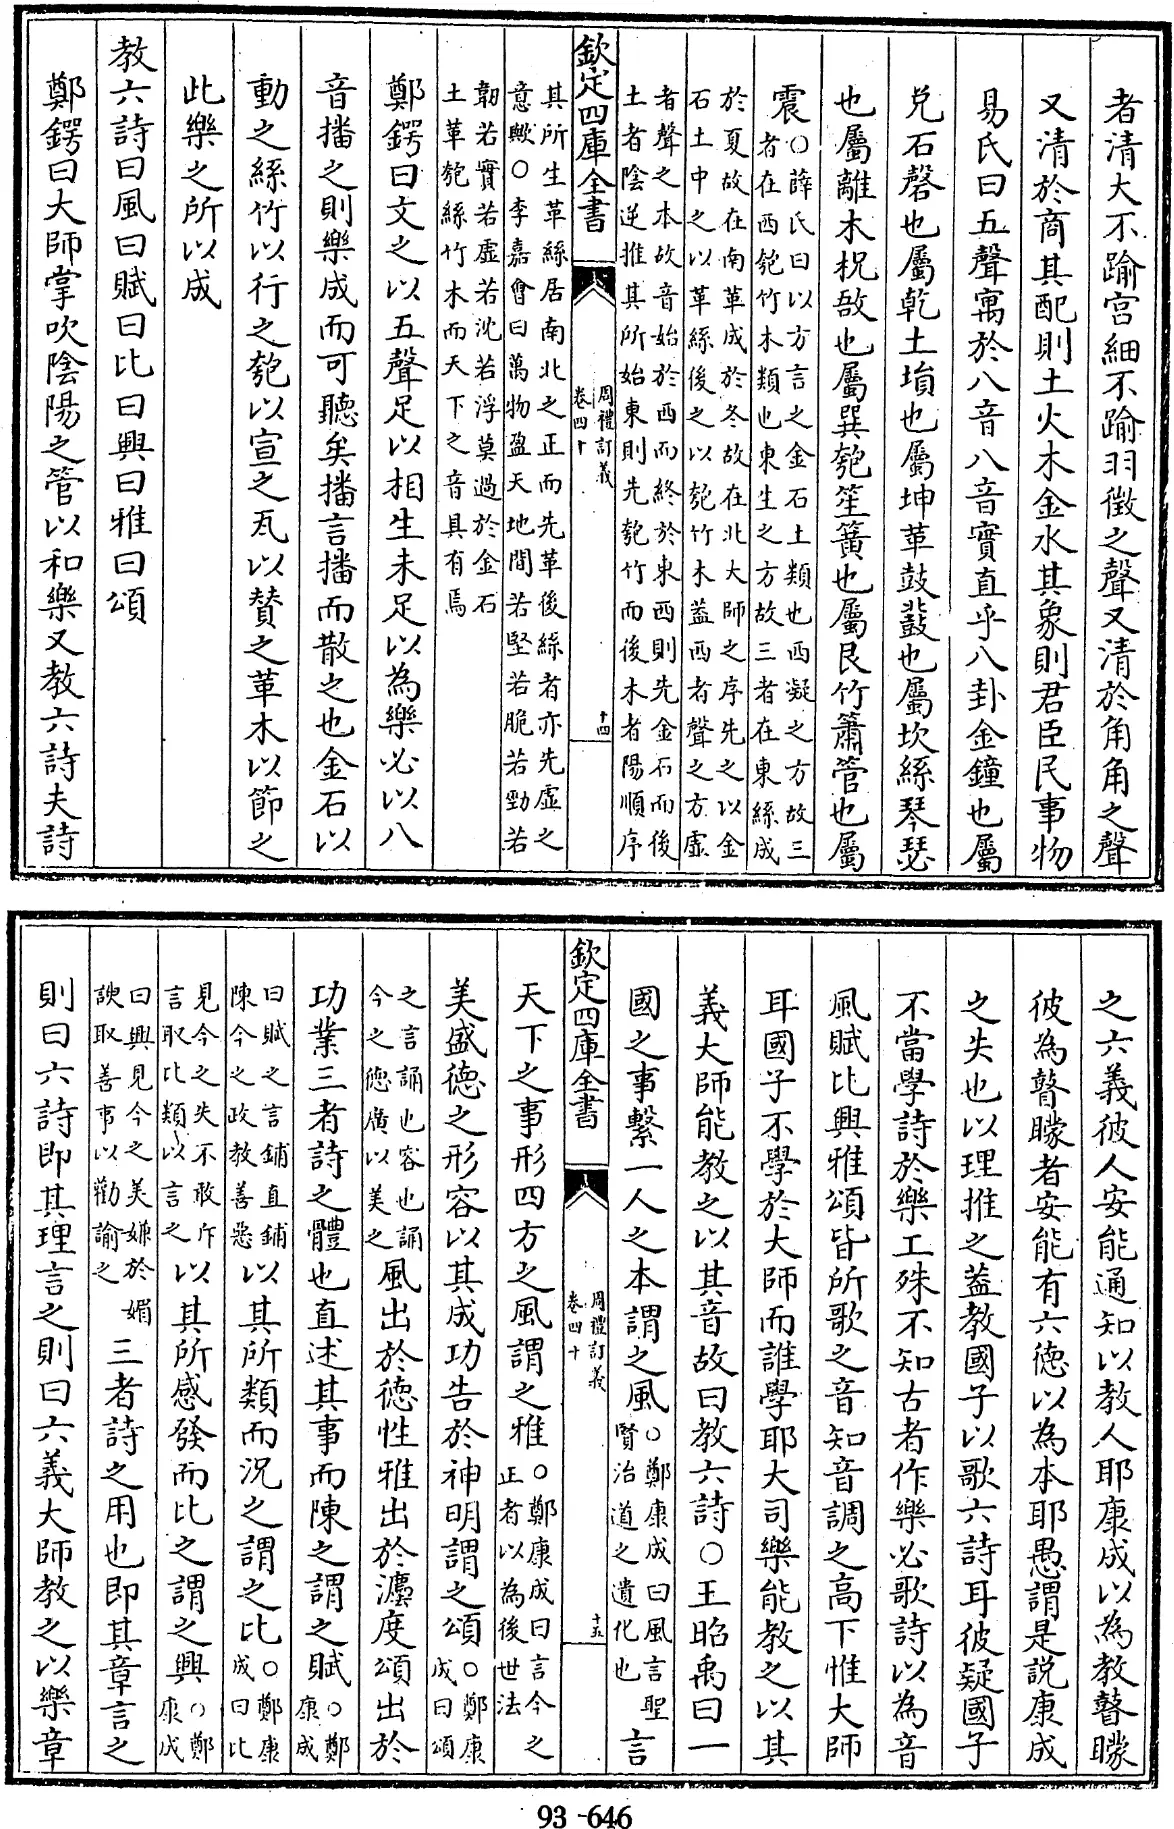 者清大不踰宫細不踰羽徴之聲又清於角角之聲
又清於商其配則土火木金水其象則君臣民事物
易氏曰五聲寓於八音八音實直乎八卦金鐘也屬
兌石磬也屬乾土塤也屬坤革鼓鼗也屬坎絲琴瑟
也屬離木柷敔也屬巽匏笙簧也屬艮竹簫管也屬
震○薛氏曰以方言之金石土類也西凝之方故三
者在西匏竹木類也東生之方故三者在東絲成
於夏故在南革成於冬故在北大師之序先之以金
石土中之以革絲後之以匏竹木蓋西者聲之方虛
者聲之本故音始於西而終於東西則先金石而後
土者陰逆推其所始東則先匏竹而後木者陽順序
欽定四庫全書
周禮訂義
卷四十
十四
其所生革絲居南北之正而先革後絲者亦先虛之
意歟○李嘉會曰萬物盈天地間若堅若脆若勁若
韌若實若虛若沈若浮莫過於金石
土革匏絲竹木而天下之音具有焉
鄭鍔曰文之以五聲足以相生未足以為樂必以八
音播之則樂成而可聽矣播言播而散之也金石以
動之絲竹以行之匏以宣之瓦以贊之革木以節之
此樂之所以成
教六詩曰風曰賦曰比曰興曰雅曰頌
鄭鍔曰大師掌吹陰陽之管以和樂又教六詩夫詩
之六義彼人安能通知以教人耶康成以為教瞽矇
彼為瞽矇者安能有六徳以為本耶愚謂是說康成
之失也以理推之蓋教國子以歌六詩耳彼疑國子
不當學詩於樂工殊不知古者作樂必歌詩以為音
風賦比興雅頌皆所歌之音知音調之高下惟大師
耳國子不學於大師而誰學耶大司樂能教之以其
義大師能教之以其音故曰教六詩○王昭禹曰一
國之事繫一人之本謂之風○鄭康成曰風言聖
賢治道之遺化也言
欽定四庫全書
周禮訂義
卷四十
十五
天下之事形四方之風謂之雅○鄭康成曰言今之
正者以為後世法
美盛徳之形容以其成功告於神明謂之頌○鄭康
成曰頌
之言誦也容也誦
今之徳廣以美之風出於徳性雅出於灋度頌出於
功業三者詩之體也直述其事而陳之謂之賦○鄭
康成
曰賦之言鋪直鋪
陳今之政教善惡以其所類而況之謂之比○鄭康
成曰比
見今之失不敢斥
言取比類以言之以其所感發而比之謂之興○鄭
康成
曰興見今之美嫌於媚
諛取善事以勸諭之三者詩之用也即其章言之
則曰六詩即其理言之則曰六義大師教之以樂章
93-646